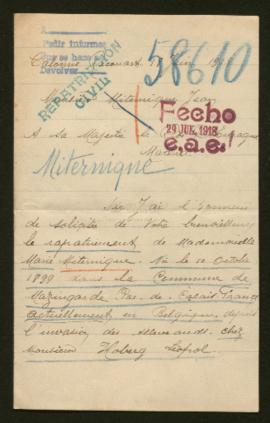 Pedir informes
Devolver
58610
REPATRIACIÓN
CIVIL
Monsieur Miternique Jean
Fecho
29 JUL. 1918
A Sa Majesté le
Miternique
J'ai l'honneur
de solliciter de Votre bienveillance
le rapatriement de Mademoiselle
Marie Miternique. Née le 10 Octobre
1899 dans la Commune de
Mazingarde Pas-de-Calais France
actuellement en Belgique depuis
l'invasion des allemands. chez
Monsieur Hoberg